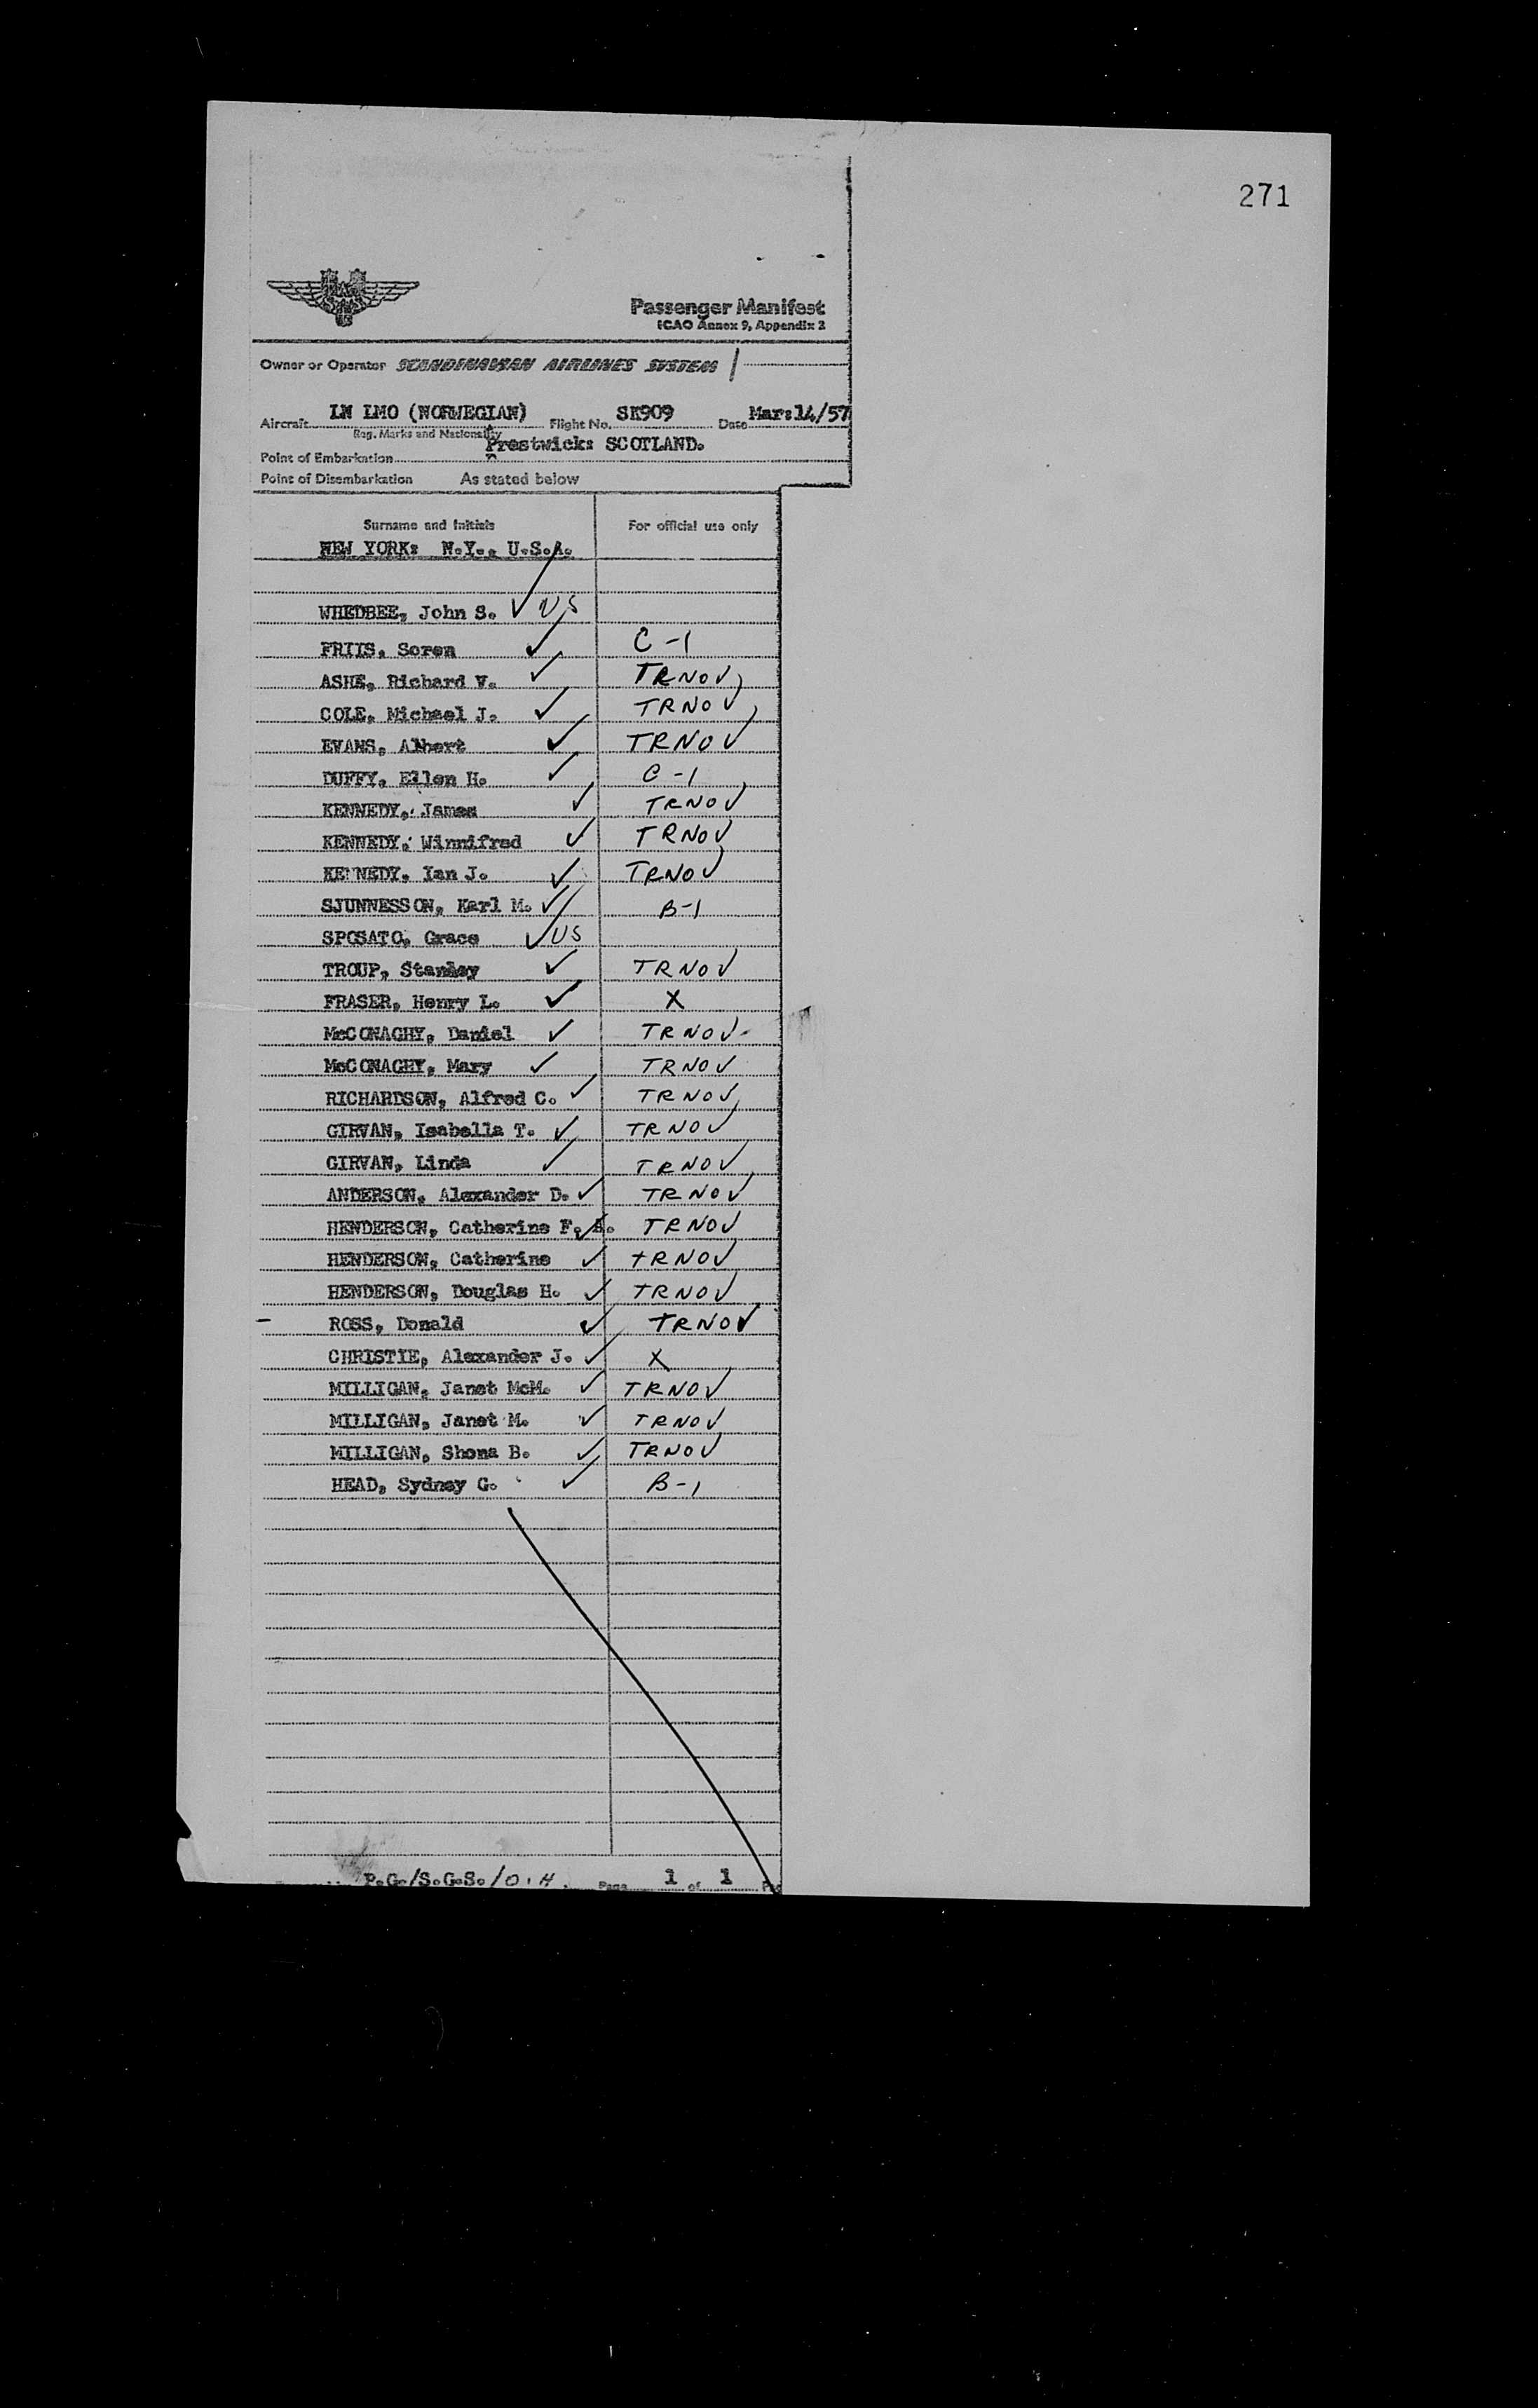 271
Passenger Manifest
ICAO Annex 9, Appendix 2
Owner or Operator SCANDINAVIAN AIRLINES SYSTEM
Aircraft LN LMO (NORWEGIAN) Flight No. SK909 Date Mar:14/57
Reg. Marks and Nationality
Point of Embarkation Prestwick: SCOTLAND.
Point of Disembarkation As stated below
Surname and Initials For official use only
NEW YORK: N.Y., U.S.A.
WHEDBEE, John S. ✓ US
FRIIS, Soren ✓ C-1
ASHE, Richard V. ✓ TRNOV
COLE, Michael J. ✓ TRNOV
EVANS, Albert ✓ TRNOV
DUFFY, Ellen H. ✓ C-1
KENNEDY, James ✓ TRNOV
KENNEDY, Winnifred ✓ TRNOV
KENNEDY, Ian J. ✓ TRNOV
SJUNNESSON, Karl M. ✓ B-1
SPOSATO, Grace ✓ US
TROUP, Stanley ✓ TRNOV
FRASER, Henry L. ✓ X
McCONAGHY, Daniel ✓ TRNOV
McCONAGHY, Mary ✓ TRNOV
RICHARDSON, Alfred C. ✓ TRNOV
GIRVAN, Isabella T. ✓ TRNOV
GIRVAN, Linda ✓ TRNOV
ANDERSON, Alexander D. ✓ TRNOV
HENDERSON, Catherine F. ✓ TRNOV
HENDERSON, Catherine ✓ TRNOV
HENDERSON, Douglas H. ✓ TRNOV
ROSS, Donald ✓ TRNOV
CHRISTIE, Alexander J. ✓ X
MILLIGAN, Janet McM. ✓ TRNOV
MILLIGAN, Janet M. ✓ TRNOV
MILLIGAN, Shona B. ✓ TRNOV
HEAD, Sydney G. ✓ B-1
P.G./S.G.S./O.H. Page 1 of 1